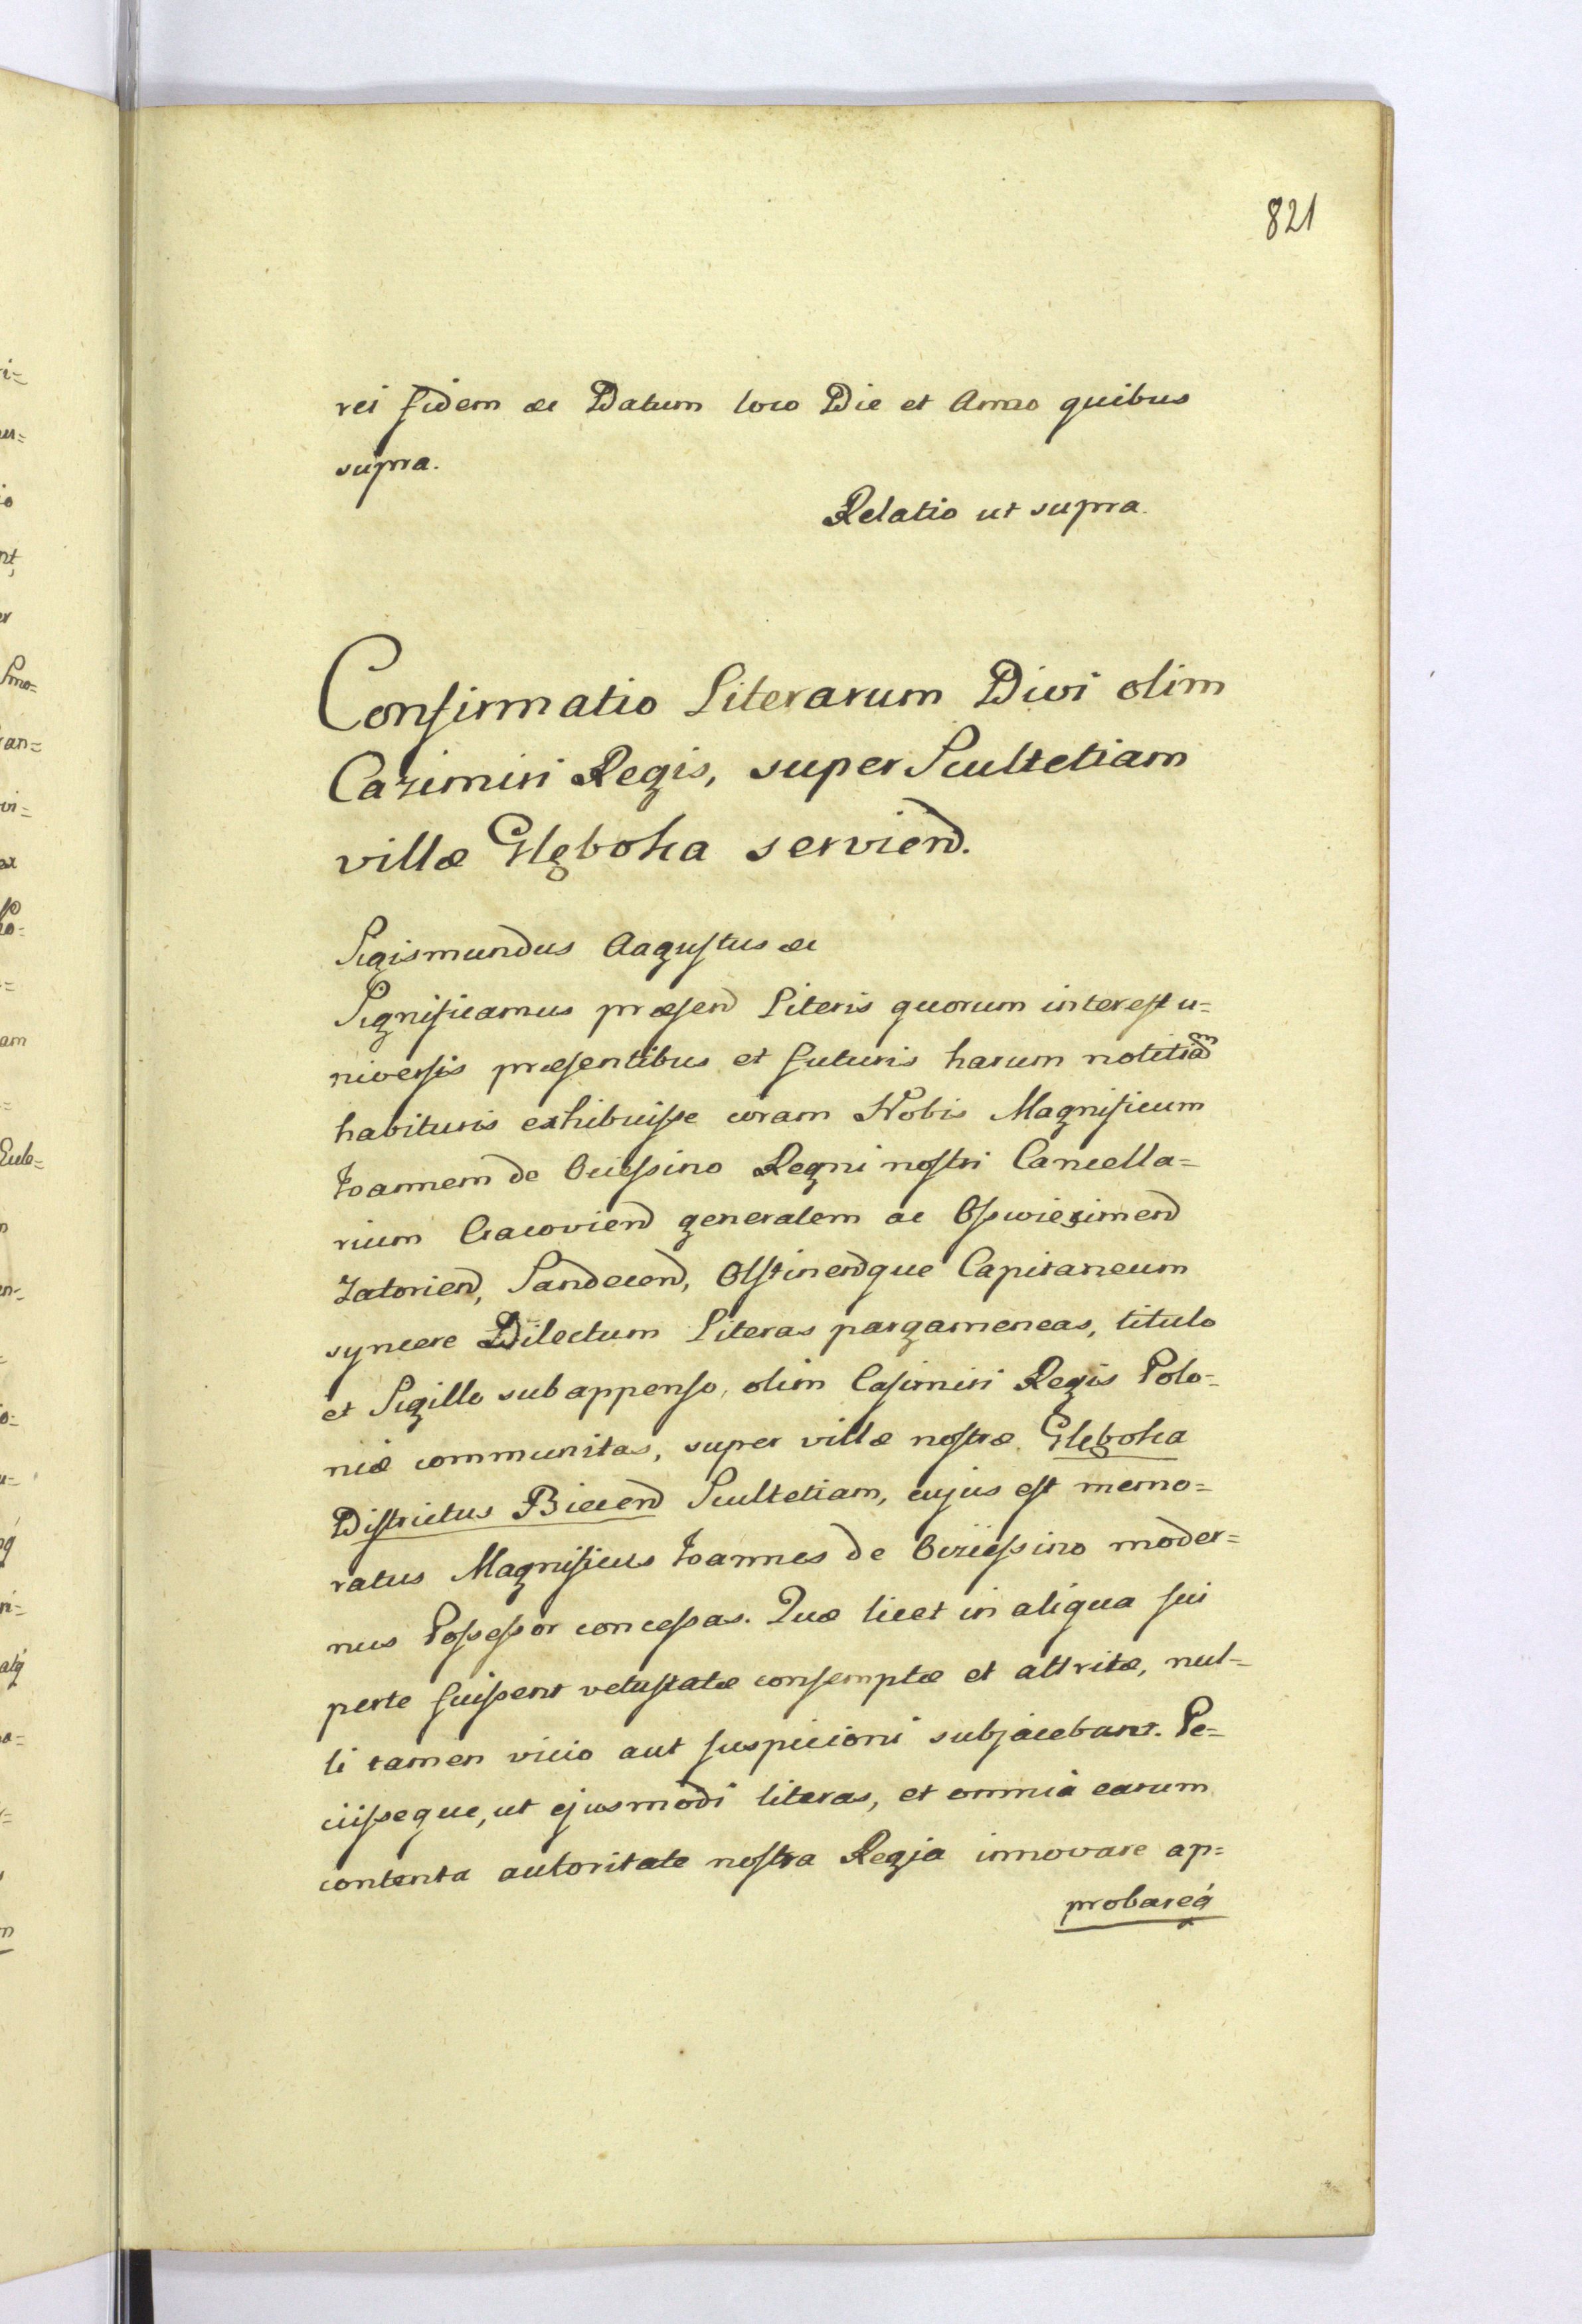 821
rei fidem &c Datum loco Die et Anno quibus
supra.
Relatio ut supra.
Confirmatio Literarum Divi olim
Cazimiri Regis, super Scultetiam
villæ Głęboka serviend.
Sigismundus Aagustus &c
Significamus præsend Literis quorum interest u=
niversis præsentibus et futuris harum notitiam
habituris exhibuisse coram Nobis Magnificum
Joannem de Ociessino Regni nostri Cancella=
rium Cracoviend generalem ac Osswiezimend
Zatoriend, Sandecend, Olstinendque Capitaneum
syncere Dilectum Literas pargameneas, titulo
et Sigillo subappenso, olim Casimiri Regis Polo=
niæ communitas, super villæ nostræ Głęboka
Districtus Biecend Scultetiam, cujus est memo=
ratus Magnificus Joannes de Ocziessino moder=
nus Possessor concessas. Quæ licet in aliqua sui
perte fuissent vetustatæ consemptæ et attritæ, nul=
li tamen vicio aut suspicioni subjacebant. Pe=
ciisseque, ut ejusmodi literas, et omnia earum
contenta autoritate nostra Regia innovare ap=
probareq́